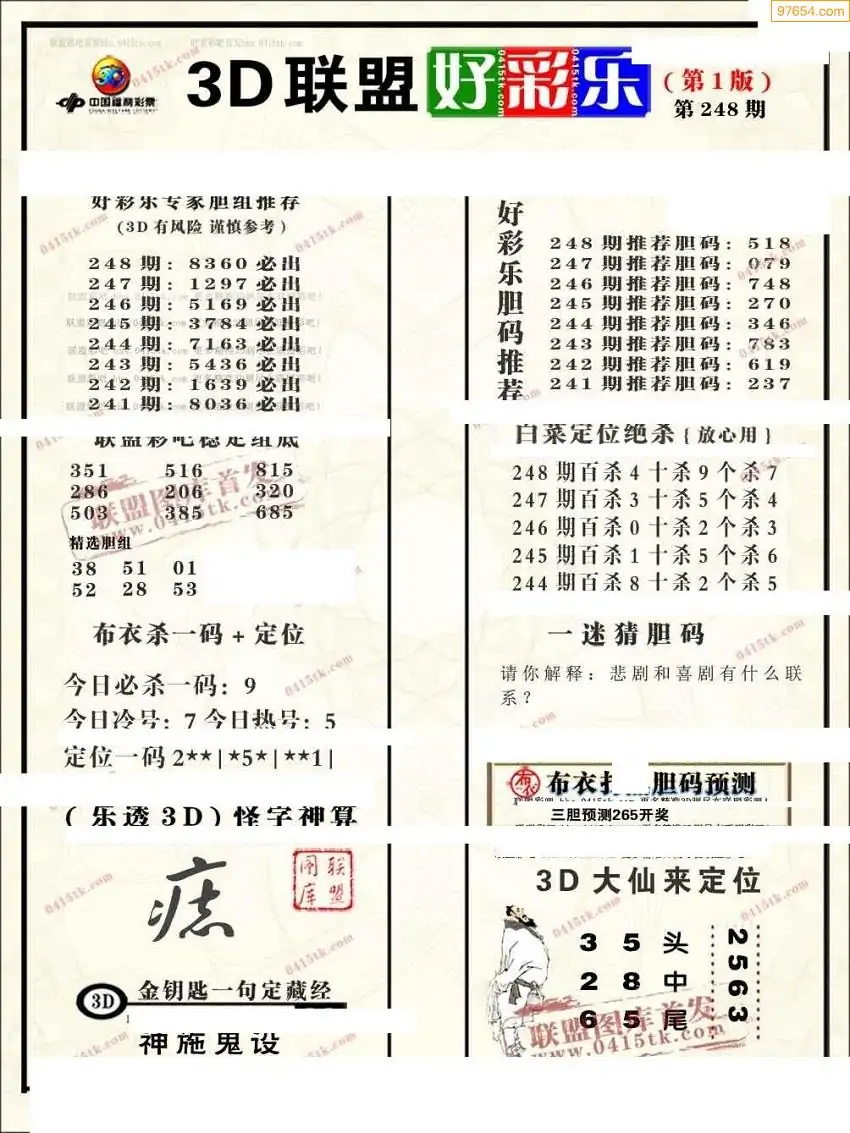 97654.com
中国福利彩票
CHINA WELFARE LOTTERY
3D联盟好彩乐
(第1版)
第248期
0415tk.com
好彩乐专家胆组推荐
(3D有风险 谨慎参考)
248期: 8360必出
247期: 1297必出
246期: 5169必出
245期: 3784必出
244期: 7163必出
243期: 5436必出
242期: 1639必出
241期: 8036必出
联盟彩吧稳定组底
351 516 815
286 206 320
503 385 685
联盟图库首发
www.0415tk.com
精选胆组
38 51 01
52 28 53
布衣杀一码+定位
今日必杀一码: 9
今日冷号: 7 今日热号: 5
定位一码 2**|*5*|**1|
(乐透3D)怪字神算
联盟图库
3D
金钥匙一句定藏经
神施鬼设
好彩乐胆码推荐
248期推荐胆码: 518
247期推荐胆码: 079
246期推荐胆码: 748
245期推荐胆码: 270
244期推荐胆码: 346
243期推荐胆码: 783
242期推荐胆码: 619
241期推荐胆码: 237
白菜定位绝杀{放心用}
248期百杀4十杀9个杀7
247期百杀3十杀5个杀4
246期百杀0十杀2个杀3
245期百杀1十杀5个杀6
244期百杀8十杀2个杀5
一迷猜胆码
请你解释: 悲剧和喜剧有什么联
系?
布衣
布衣 胆码预测
三胆预测265开奖
3D大仙来定位
3 5 头
2 8 中
6 5 尾
2563
联盟图库首发
www.0415tk.com